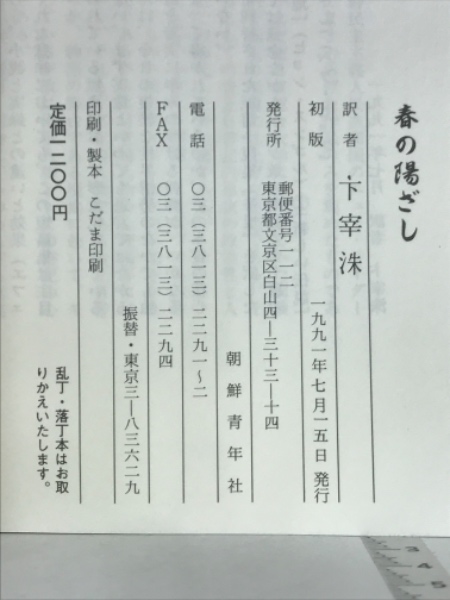 春の陽ざし
訳者 卞宰洙
初版 一九九一年七月一五日 発行
発行所 郵便番号一一二
東京都文京区白山四―三十三―十四
朝鮮青年社
電話 〇三(三八一三)二二九一〜二
FAX 〇三(三八一三)二二九四
振替・東京三―八三六二九
印刷・製本 こだま印刷
定価一二〇〇円
乱丁・落丁本はお取
りかえいたします。
3 4 5